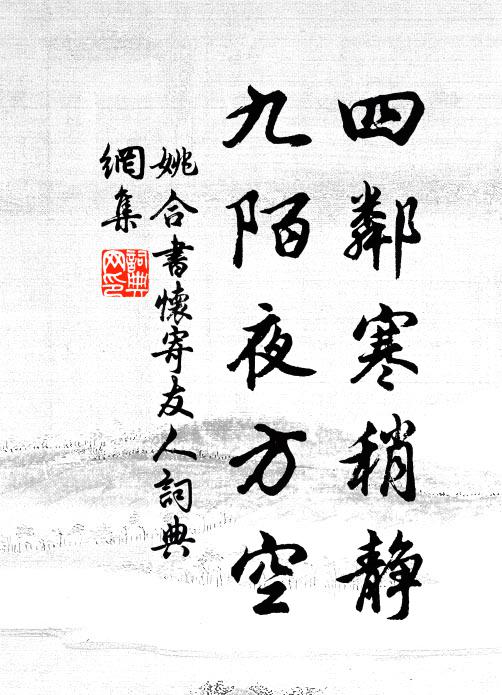 四鄰寒稍靜
九陌夜方空
姚合書懷寄友人詞典
網集
詞典網印